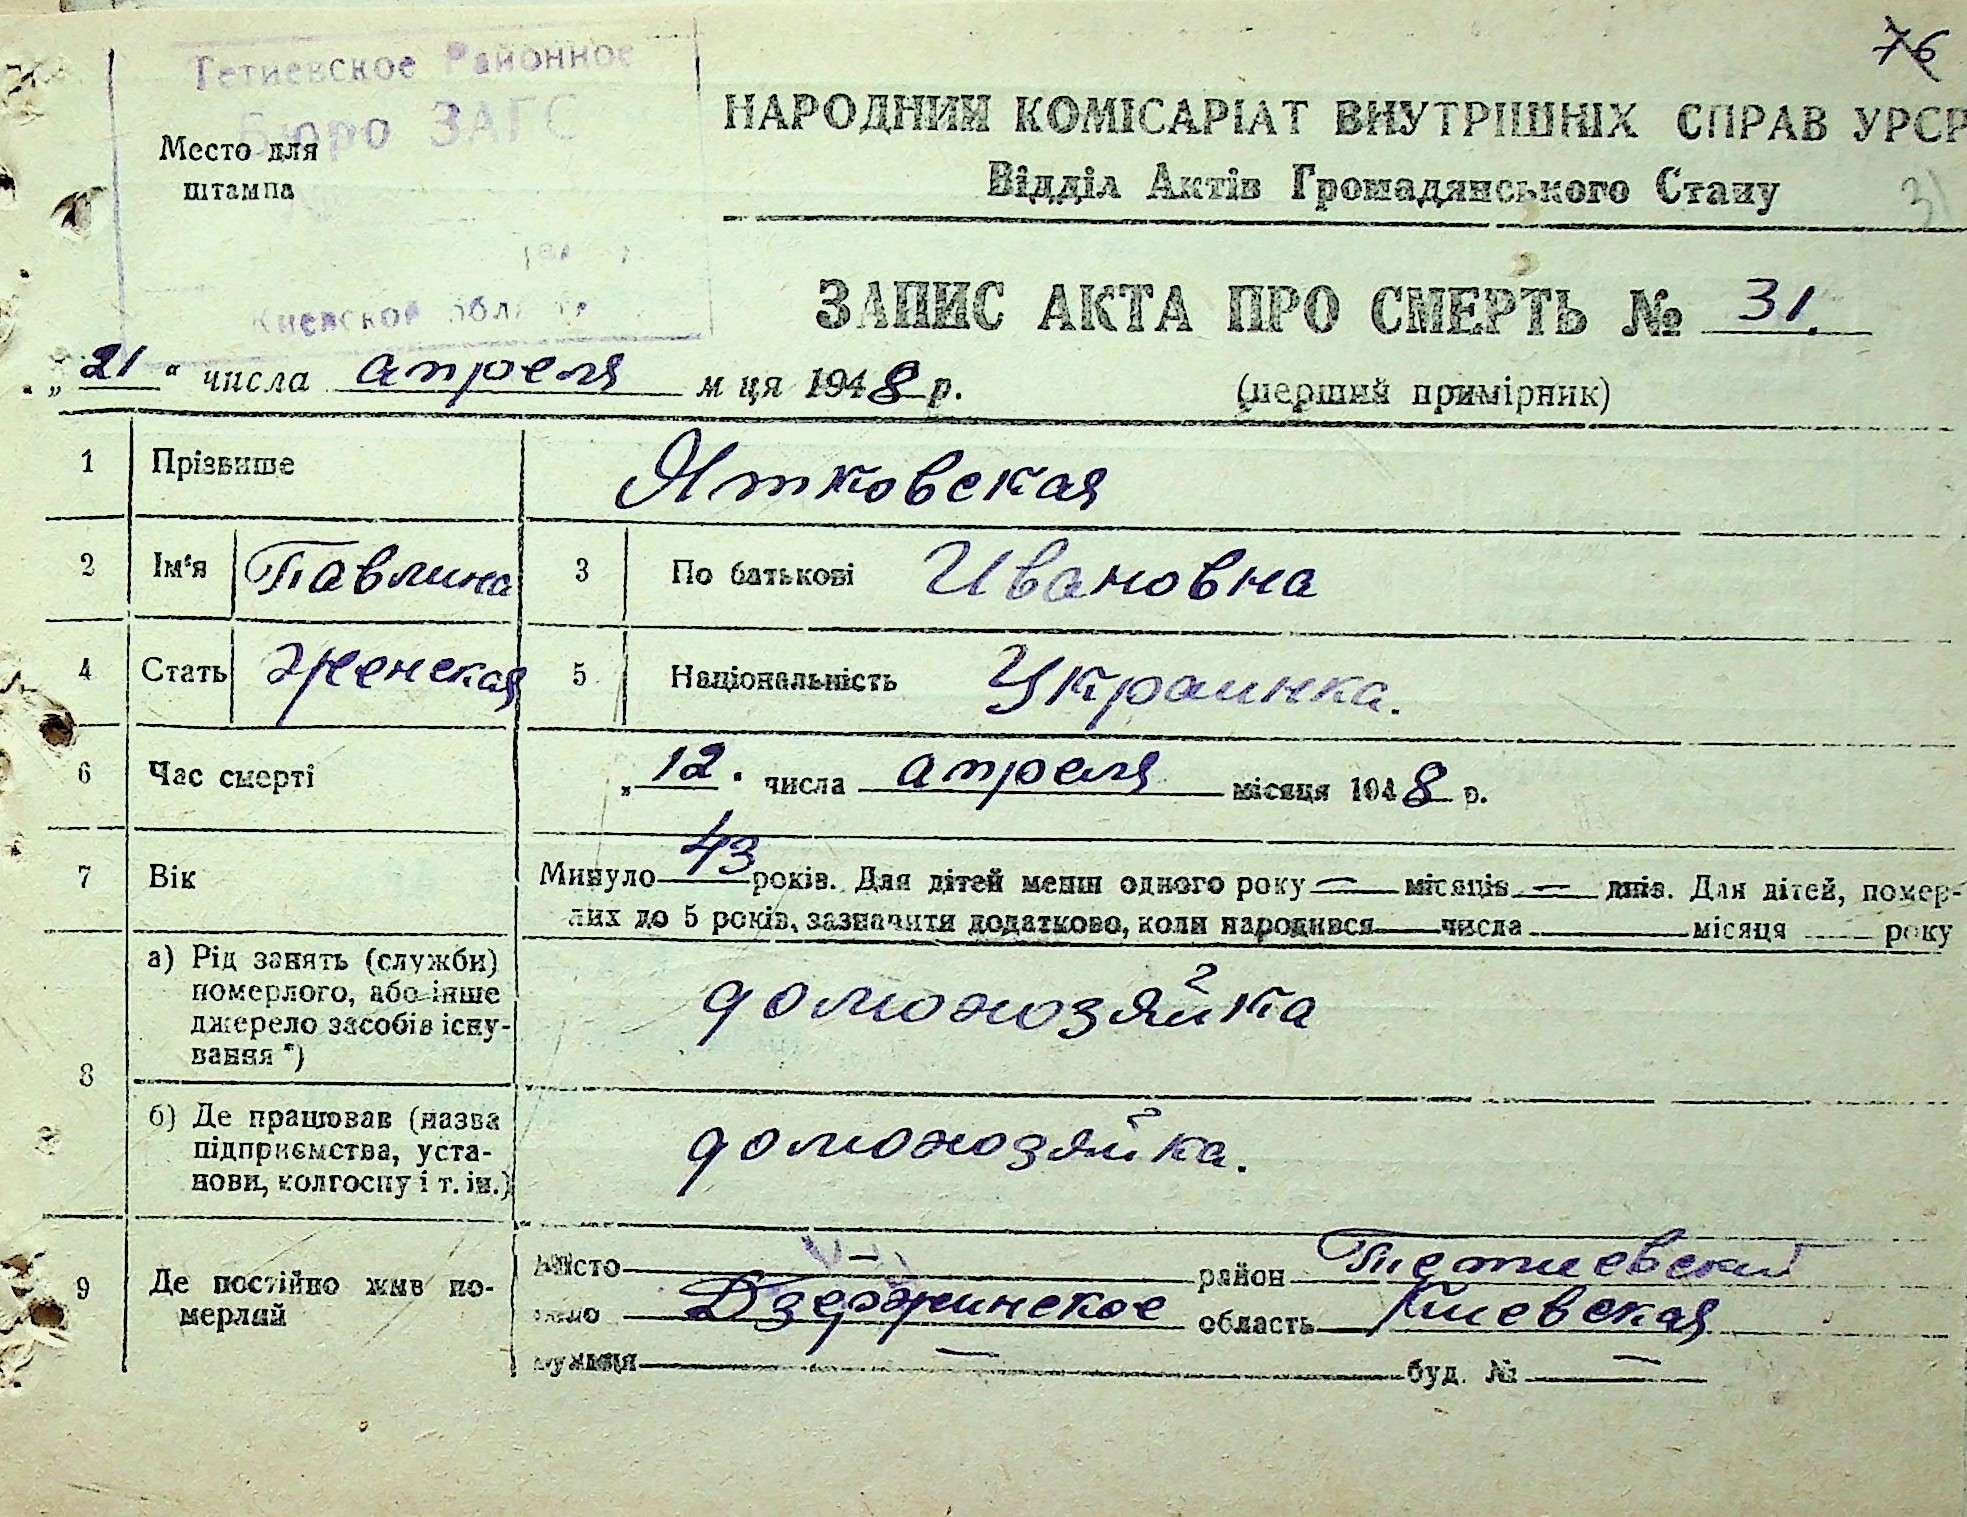 76
Тетиевское Районное
Бюро ЗАГС
Место для
штампа
Киевской
НАРОДНИЙ КОМІСАРІАТ ВНУТРІШНІХ СПРАВ УРСР
Відділ Актів Громадянського Стану
31
ЗАПИС АКТА ПРО СМЕРТЬ № 31.
„21“ числа апреля м ця 1948 р.
(перший примірник)
1 Прізвище Ятковская
2 Ім'я Павлина 3 По батькові Ивановна
4 Стать женская 5 Національність Украинка.
6 Час смерті „12. числа апреля місяця 1948 р.
7 Вік Минуло 43 років. Для дітей менш одного року — місяців — днів. Для дітей, помер-
лих до 5 років, зазначити додатково, коли народився числа місяця року
8 а) Рід занять (служби)
померлого, або інше
джерело засобів існу-
вання *)
домохозяйка
б) Де працював (назва
підприємства, уста-
нови, колгоспу і т. ін.)
домохозяйка.
9 Де постійно жив по-
мерлий
місто — район Тетиевский
село Дзержинское область Киевская
вулиця — буд. № —